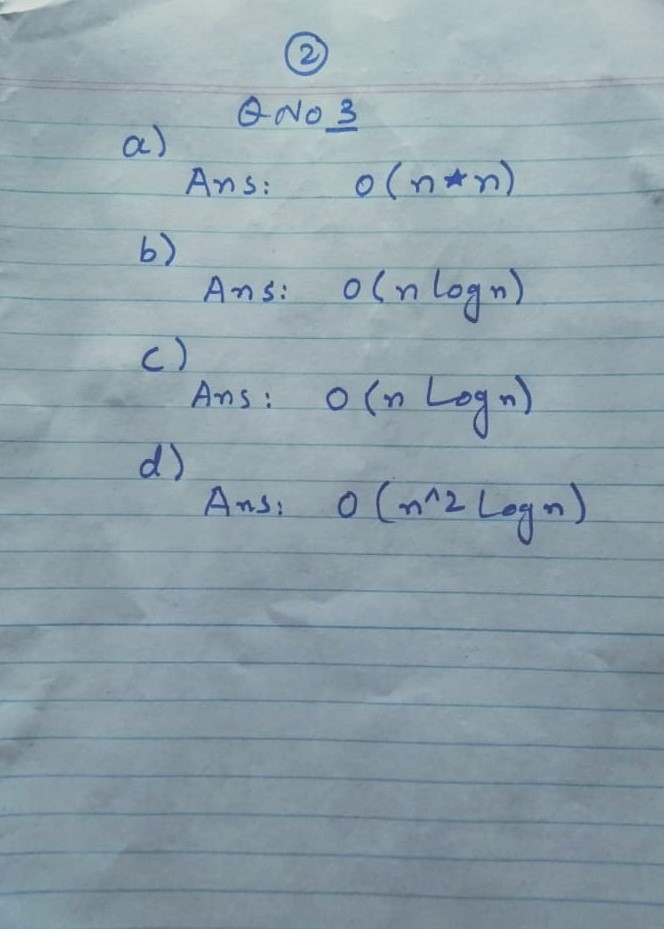 2
Q No 3
a)
Ans: O(n*n)
b)
Ans: O(n logn)
c)
Ans: O(n Logn)
d)
Ans: O(n^2 Logn)